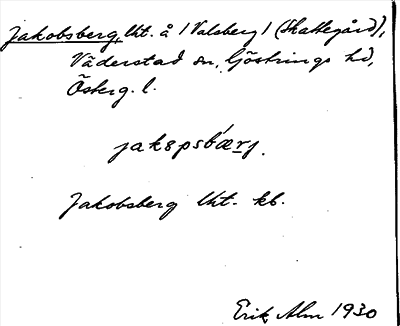 Jakobsberg, lht. å 1 Valsberg 1 (Skattegård),
Väderstad sn, Göstrings hd,
Österg. l.
jakɞpsbæ̀rj.
Jakobsberg lht. kb.
Erik Alm 1930